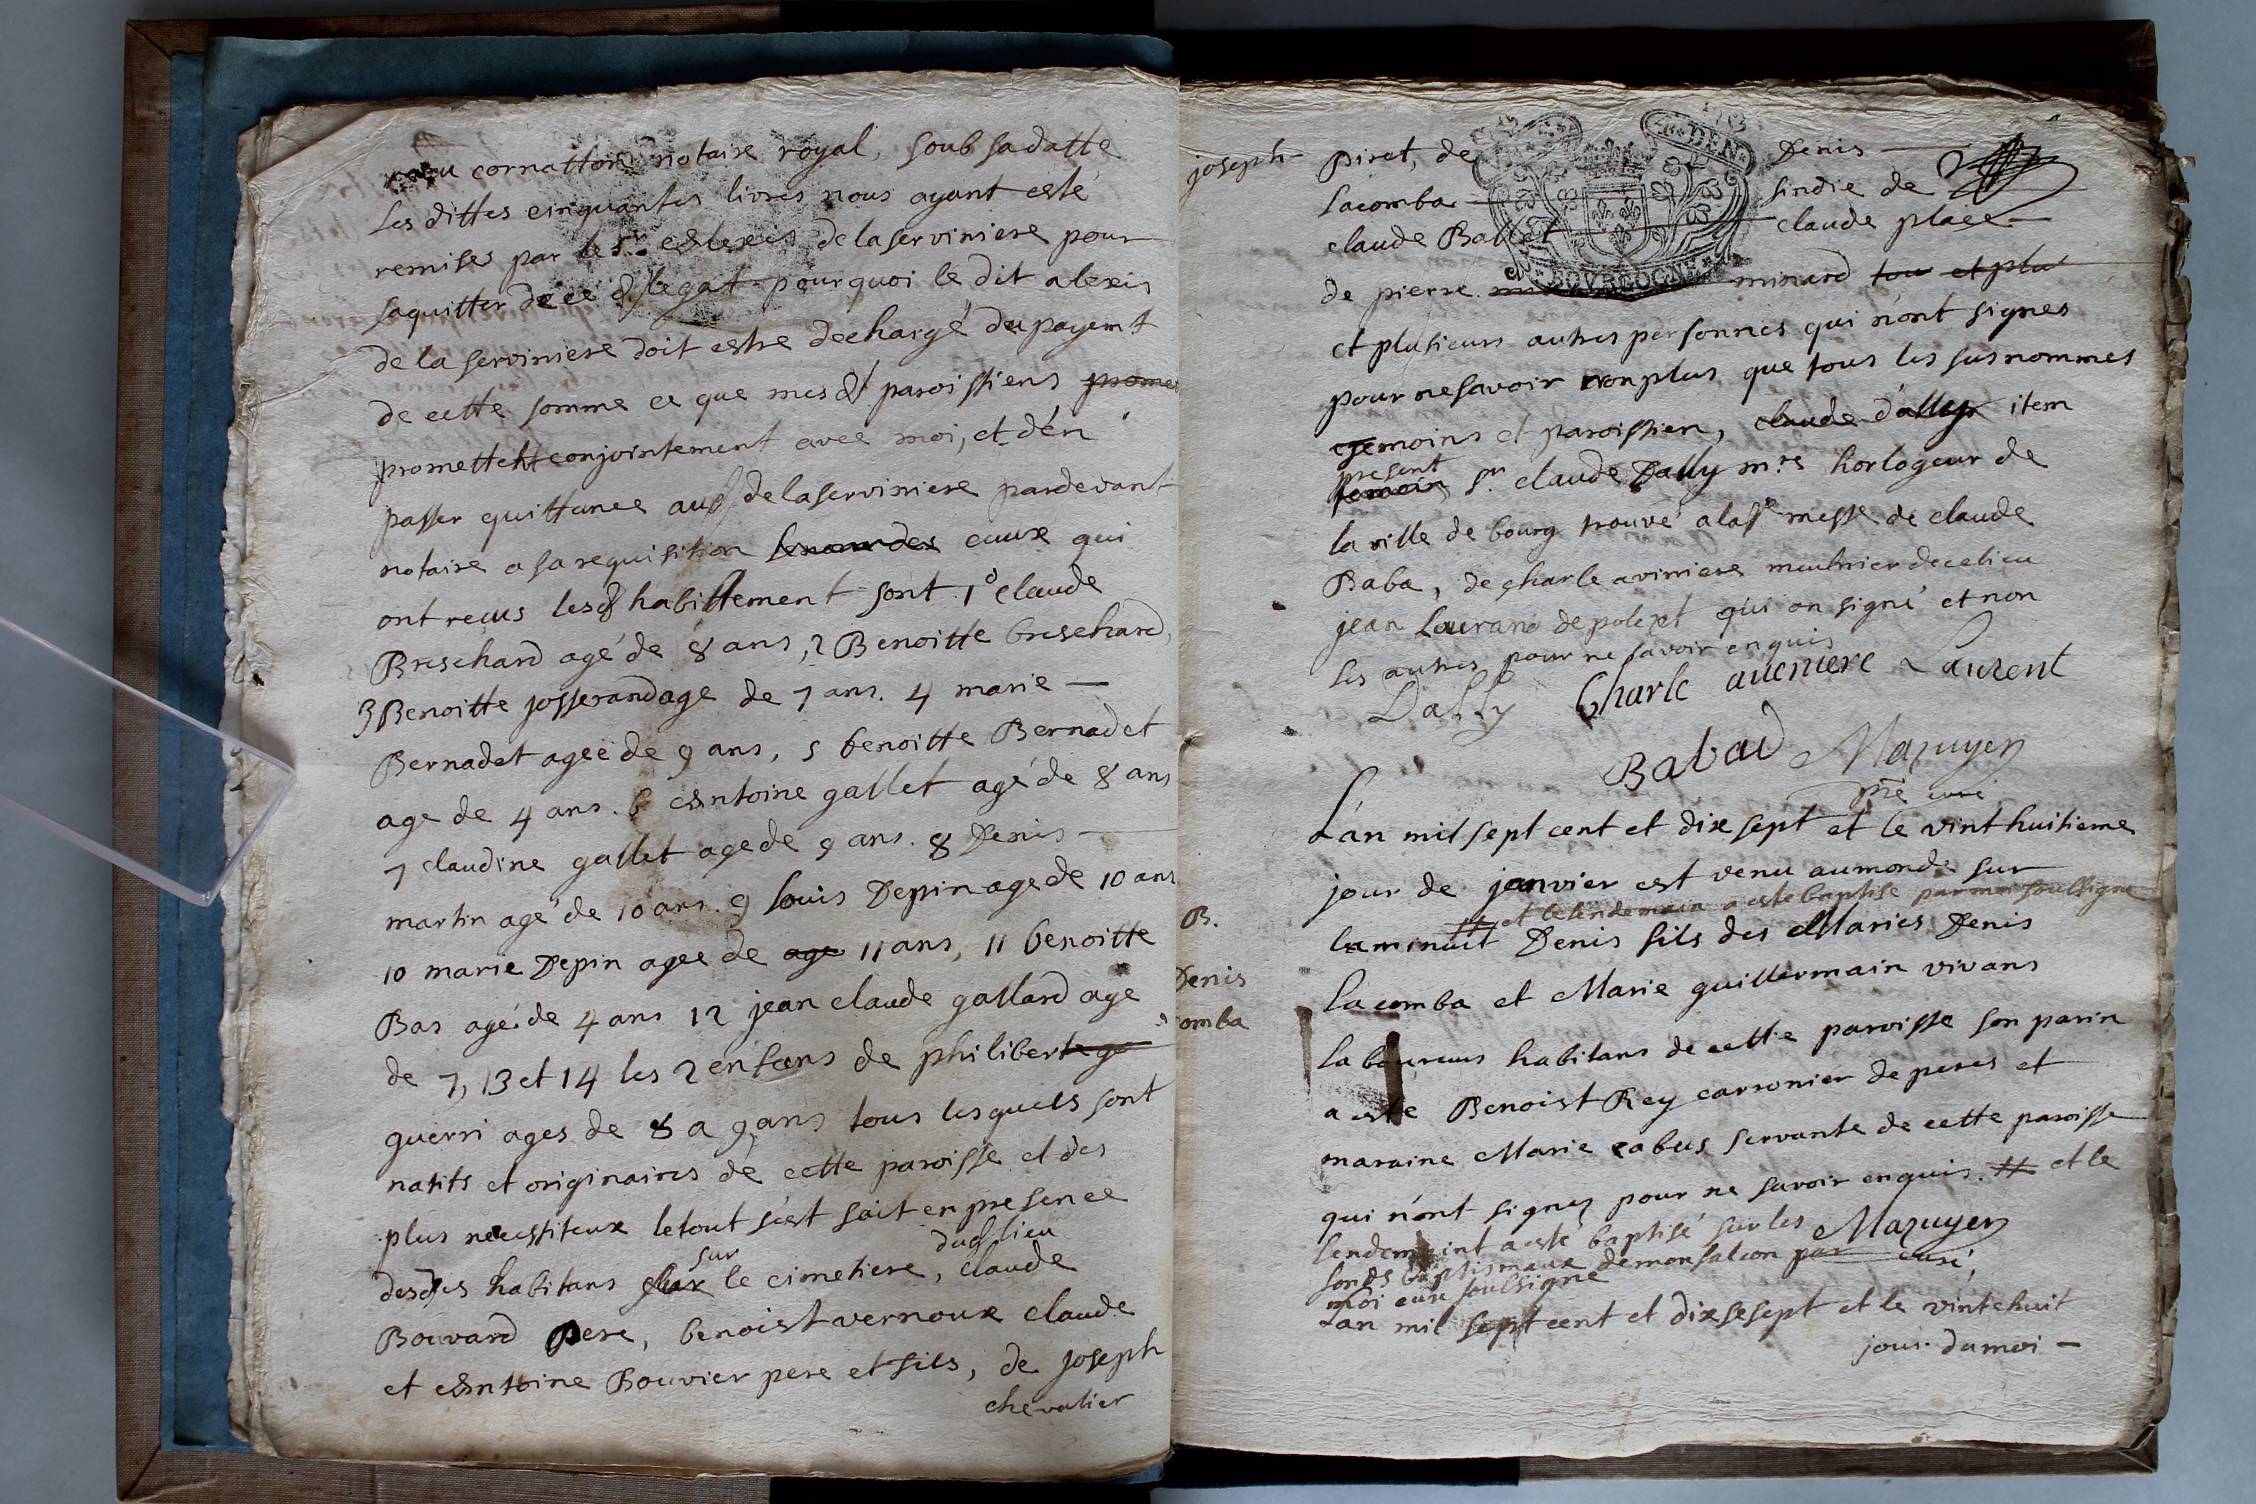 cornatton notaire royal, soub sa datte
Les dittes cinquantes livres nous ayant esté
remises par le Sr. Alexis de la serviniere pour
saquitter de ce d. legat pourquoi le dit alexis
de la serviniere doit estre dechargé du payemt
de cette somme ce que mes d. paroissiens prome
promettent conjointement avec moi, et d'en
passer quittance aud. de la serviniere pardevant
notaire a sa requisition ceuux qui
ont reçus lesd. habillement sont 1º claude
Breschard agé de 8 ans, 2 Benoitte breschard,
3 Benoitte josserand age de 7 ans. 4 marie —
Bernadet agee de 9 ans, 5 benoitte Bernadet
age de 4 ans. 6 Antoine gallet agé de 8 ans
7 claudine gallet age de 9 ans. 8 Denis —
martin agé de 10 ans. 9 louis Depin age de 10 ans
10 marie Depin agee de age 11 ans, 11 benoitte
Bas agé de 4 ans 12 jean claude gallard age
de 7, 13 et 14 les 2 enfans de philibert
guerri ages de 8 a 9 ans tous lesquels sont
natifs et originaires de cette paroisse et des
plus necessiteux le tout s'est fait en presence
sur dud. lieu
desd. habitans le cimetiere, claude
Bouvard pere, benoist vernoux claude
et Antoine Bouvier pere et fils, de joseph
chevalier
joseph Piret, de Denis —
Lacomba — sindic de
claude Ballet — claude place —
de pierre minard tou et plu
et plusieurs autres personnes qui n'ont signes
pour ne savoir non plus que tous les sus nommes
temoins et paroissien, claude dally item
present
temoin Sr. claude Dally mre horlogeur de
la ville de bourg trouvé a la messe de claude
Baba, de charle aviniere meulnier de ce lieu
jean Laurand de polexet qui on signé et non
les autres pour ne savoir enquis
Dally Charle aveniere Laurent
Babad Mazuyer
ptre curé
B.
Denis
omba
L'an mil sept cent et dix sept et le vint huitieme
jour de janvier est venu au monde sur
et le lendemain a este baptise par moi soussigne
la minuit Denis fils des Maries Denis
Lacomba et Marie guillermain vivans
laboureurs habitans de cette paroisse son parin
a este Benoist Rey carronier de peres et
maraine Marie rabus servante de cette paroisse
qui n'ont signez pour ne savoir enquis. # et le
lendemaint a esté baptisé sur les Mazuyer
fonds baptismaux de monfalcon par curé,
moi curé soussigne
Lan mil sept cent et dixsesept et le vintehuit
jour du moi —